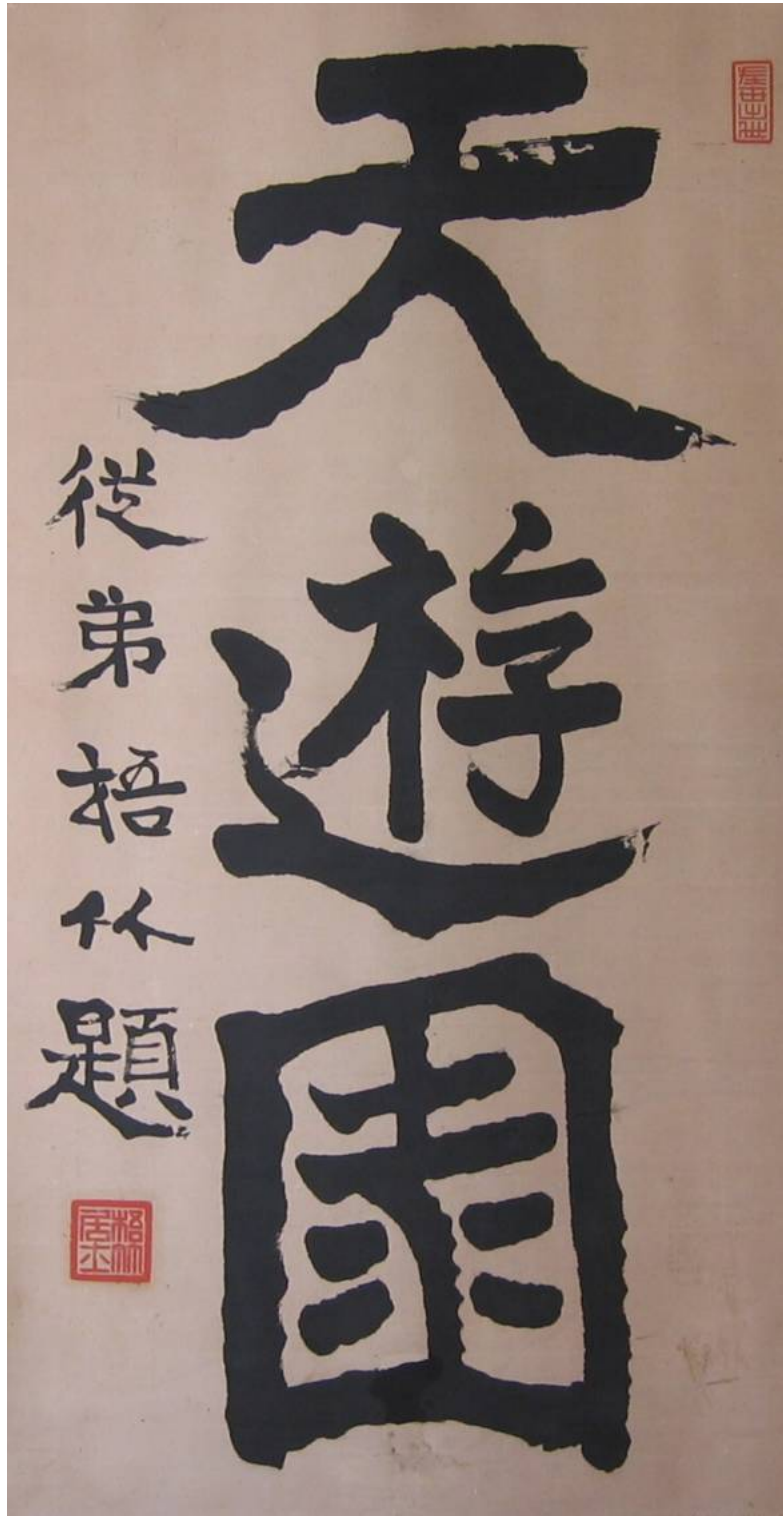 天遊
従弟梧竹題
梧竹居士